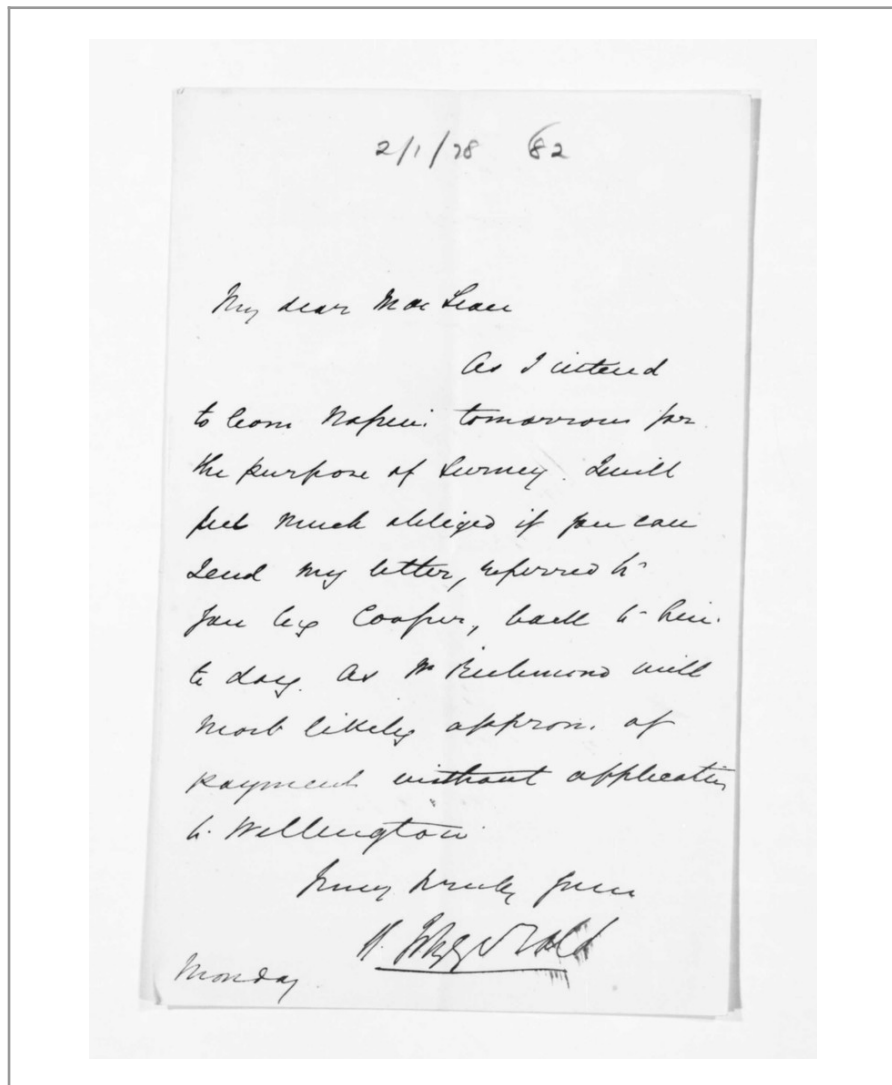 2/1/78 82
My dear MacLean
As I intend
to leave Napier tomorrow for
the purpose of Survey. I will
feel much obliged if you can
send my letter, referred to
you by Cooper, back to him
to day. As Mr Richmond will
most likely approve of
payment without application
to Wellington
Very truly yours
Fitzgerald
Monday